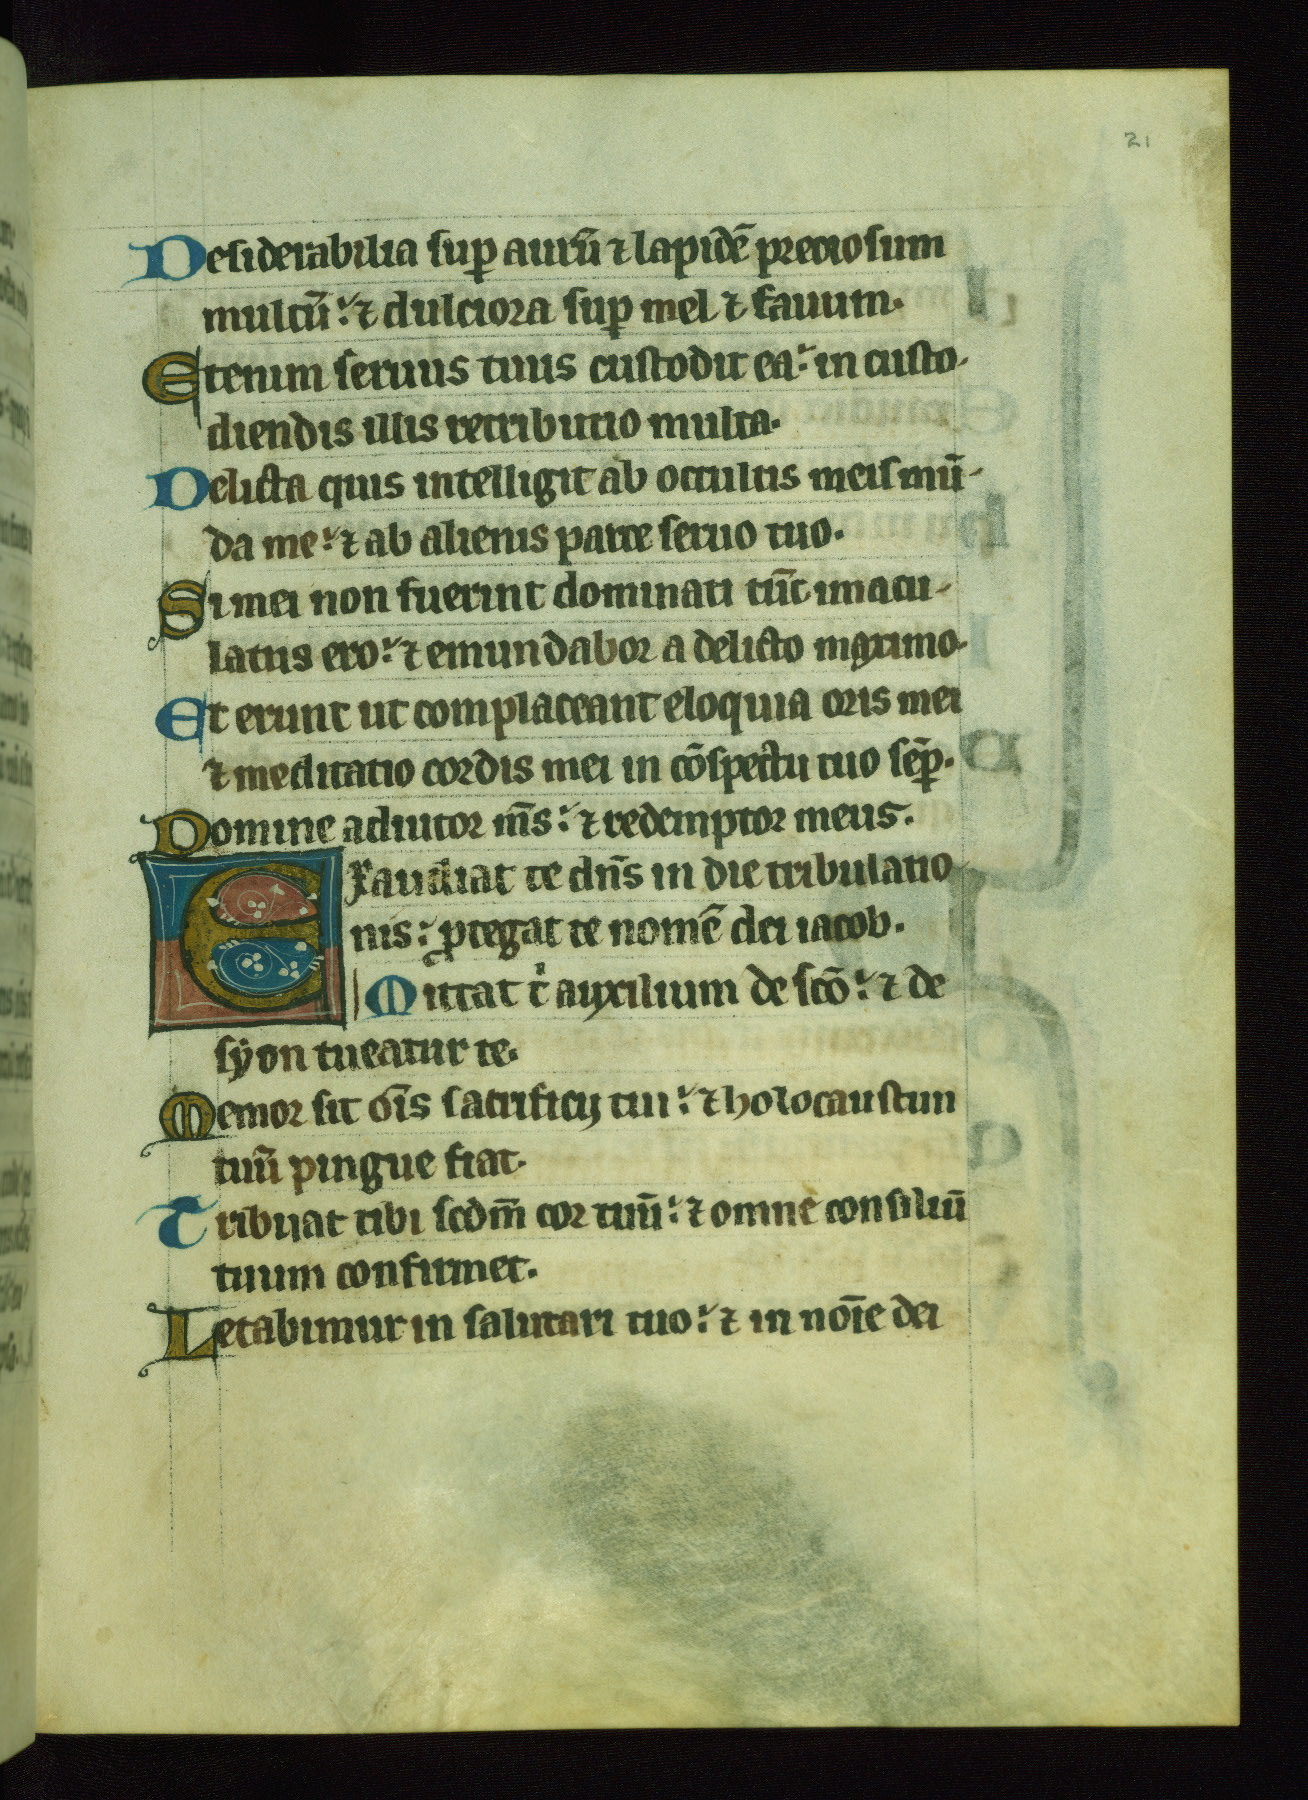 21
Desiderabilia sup aurū ⁊ lapidē preciosum
multū: ⁊ dulciora sup mel ⁊ fauum.
Etenim seruus tuus custodit ea: in custo-
diendis illis retributio multa.
Delicta quis intelligit ab occultis meis mū-
da me: ⁊ ab alienis parce seruo tuo.
Si mei non fuerint dominati tūc imacu-
latus ero: ⁊ emundabor a delicto maximo.
Et erunt ut complaceant eloquia oris mei
⁊ meditatio cordis mei in cōspectu tuo sēp.
Domine adiutor m̄s: ⁊ redemptor meus.
Exaudiat te dn̄s in die tribulatio
nis: ꝓtegat te nomē dei iacob.
Mittat tͥ auxilium de scō: ⁊ de
syon tueatur te.
Memor sit oīs sacrificij tui: ⁊ holocaustum
tuū pingue fiat.
Tribuat tibi scdm̄ cor tuū: ⁊ omne consiliū
tuum confirmet.
Letabimur in salutari tuo: ⁊ in noīe dei